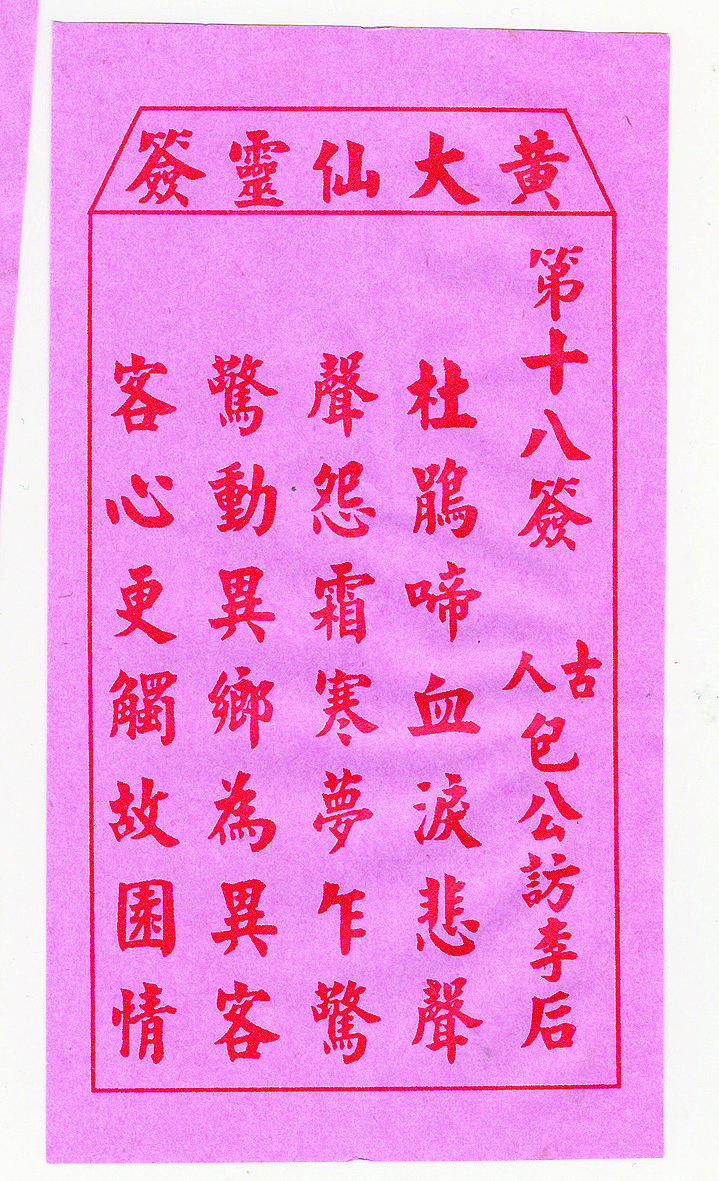 黄大仙靈簽
第十八簽 古人包公訪李后
杜鵑啼血淚悲聲
聲怨霜寒夢乍驚
驚動異鄉為異客
客心更觸故園情